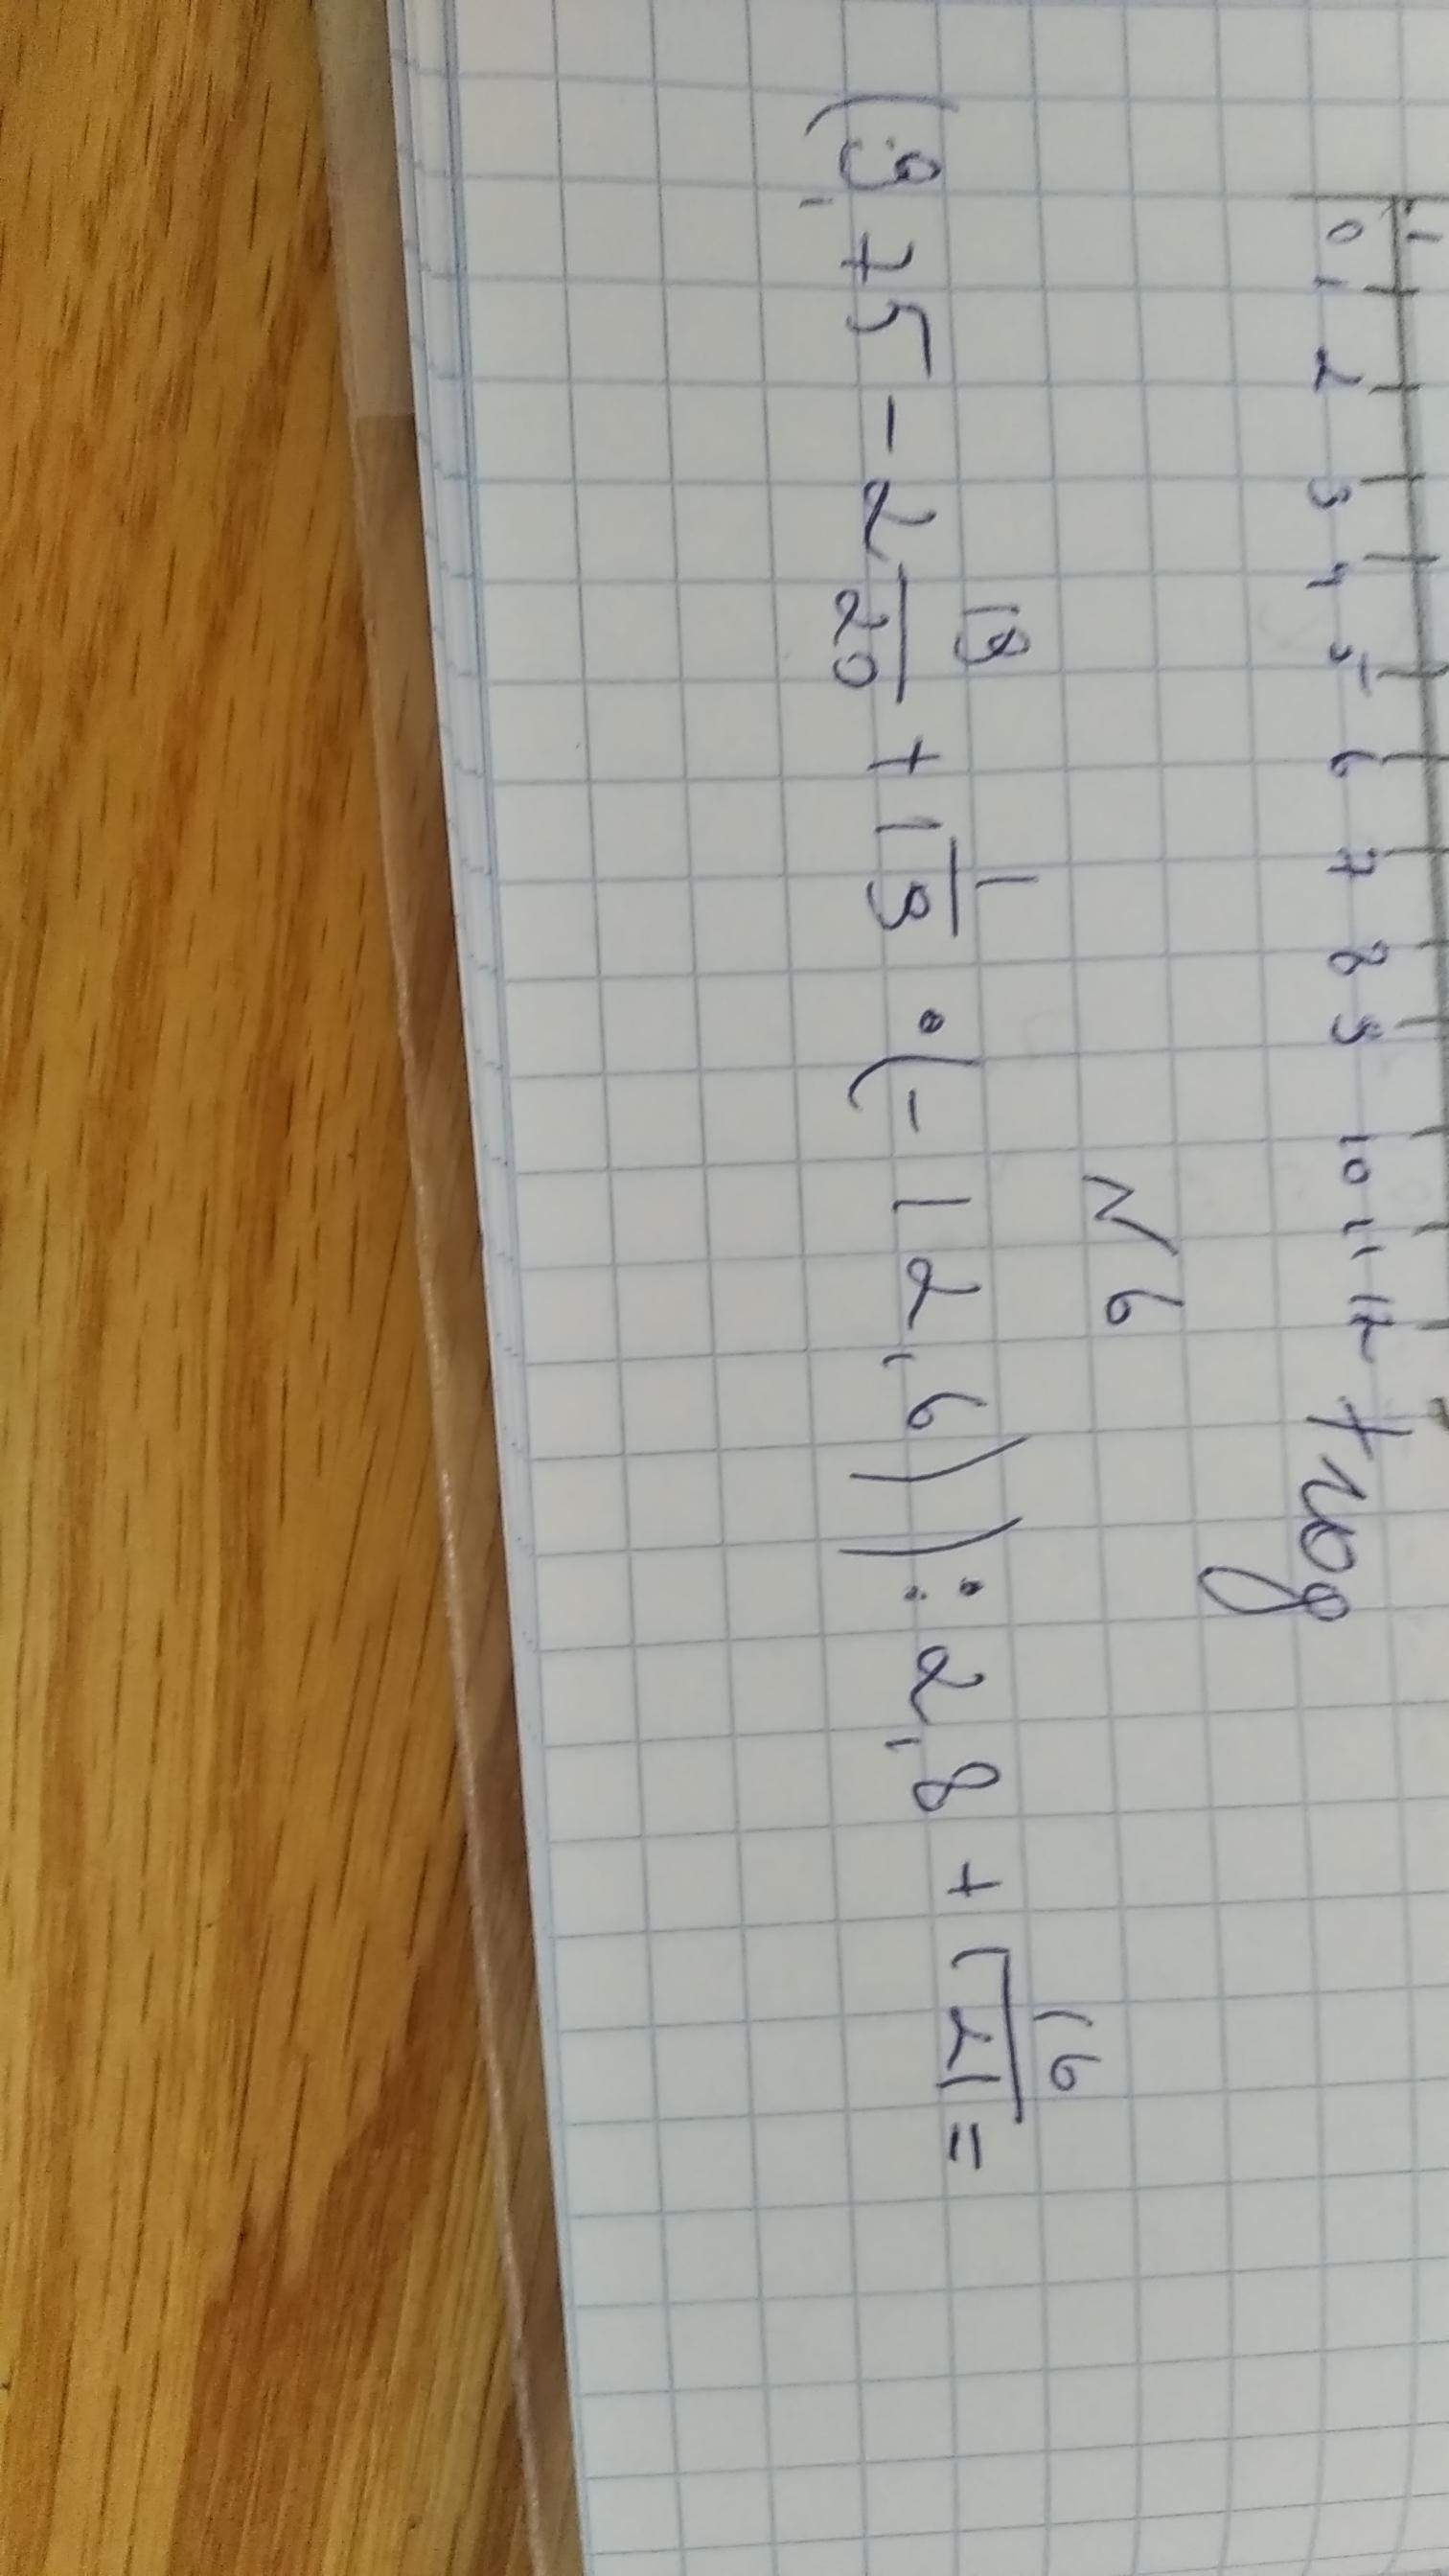 1
0 1 2 3 4 5 6 7 8 9 10 11 12 t год
N 6
(9,75 - 2 19/20 + 1 1/9 · (-12,6)) : 2,8 + 1 16/21 =